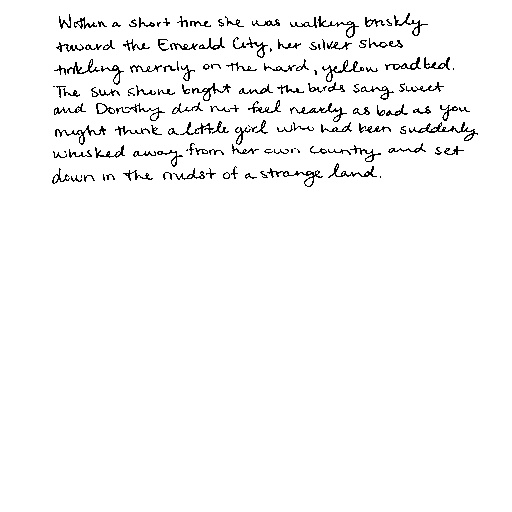 Within a short time she was walking briskly
toward the Emerald City, her silver shoes
tinkling merrily on the hard, yellow roadbed.
The sun shone bright and the birds sang sweet
and Dorothy did not feel nearly as bad as you
might think a little girl who had been suddenly
whisked away from her own country and set
down in the midst of a strange land.